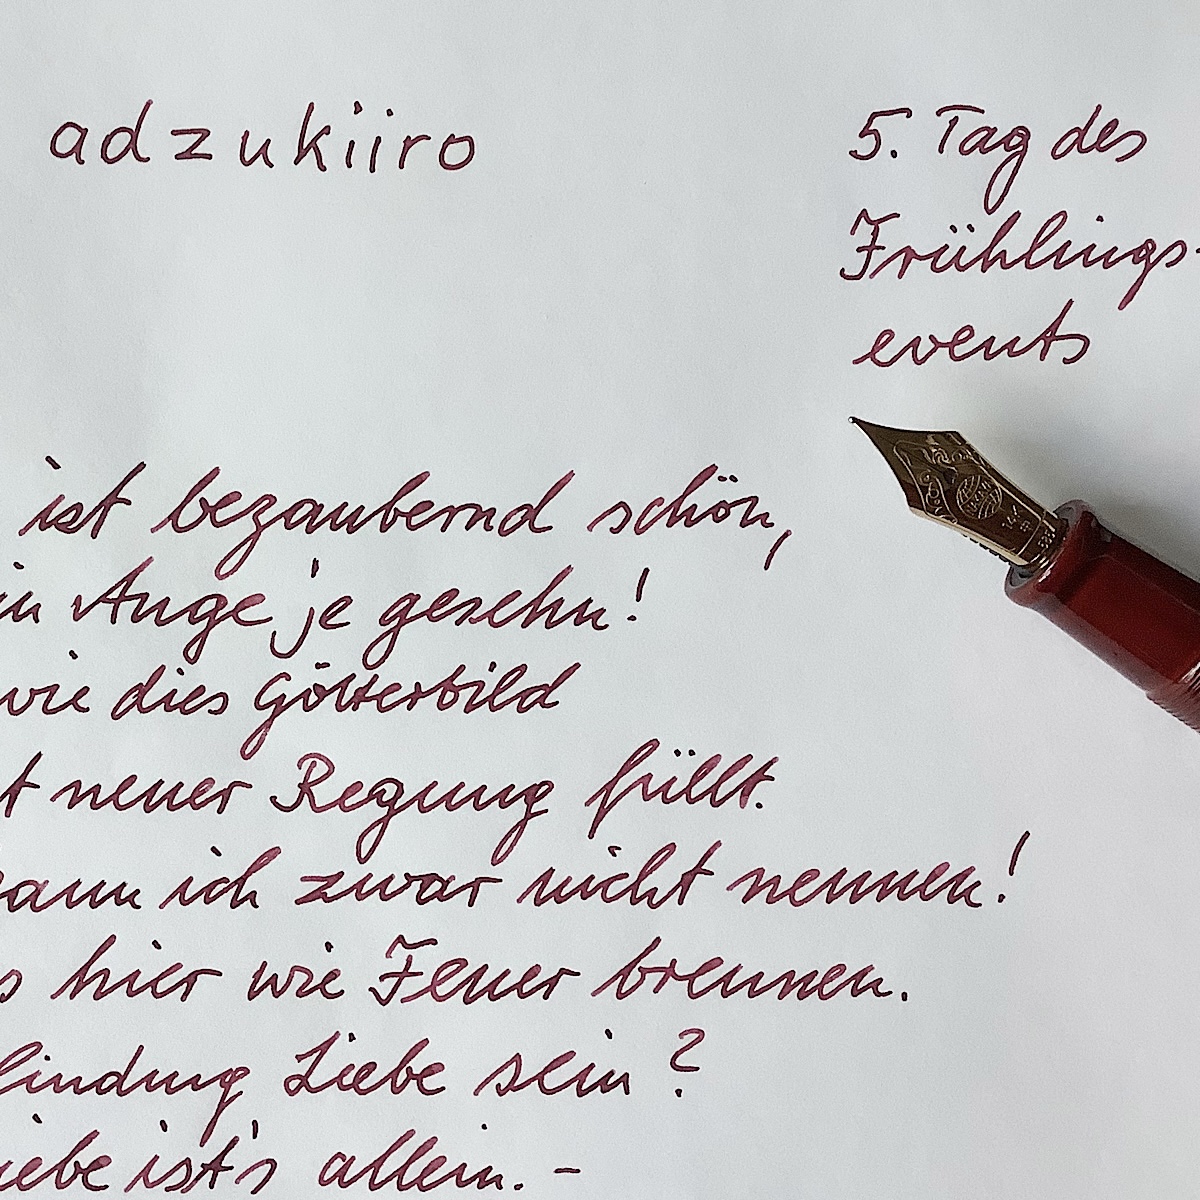 adzukiiro
5. Tag des
Frühlings-
events
ist bezaubernd schön,
Auge je gesehn!
wie dies Götterbild
neuer Regung füllt.
ich zwar nicht nennen!
hier wie Feuer brennen.
Liebe sein?
ist's allein. -